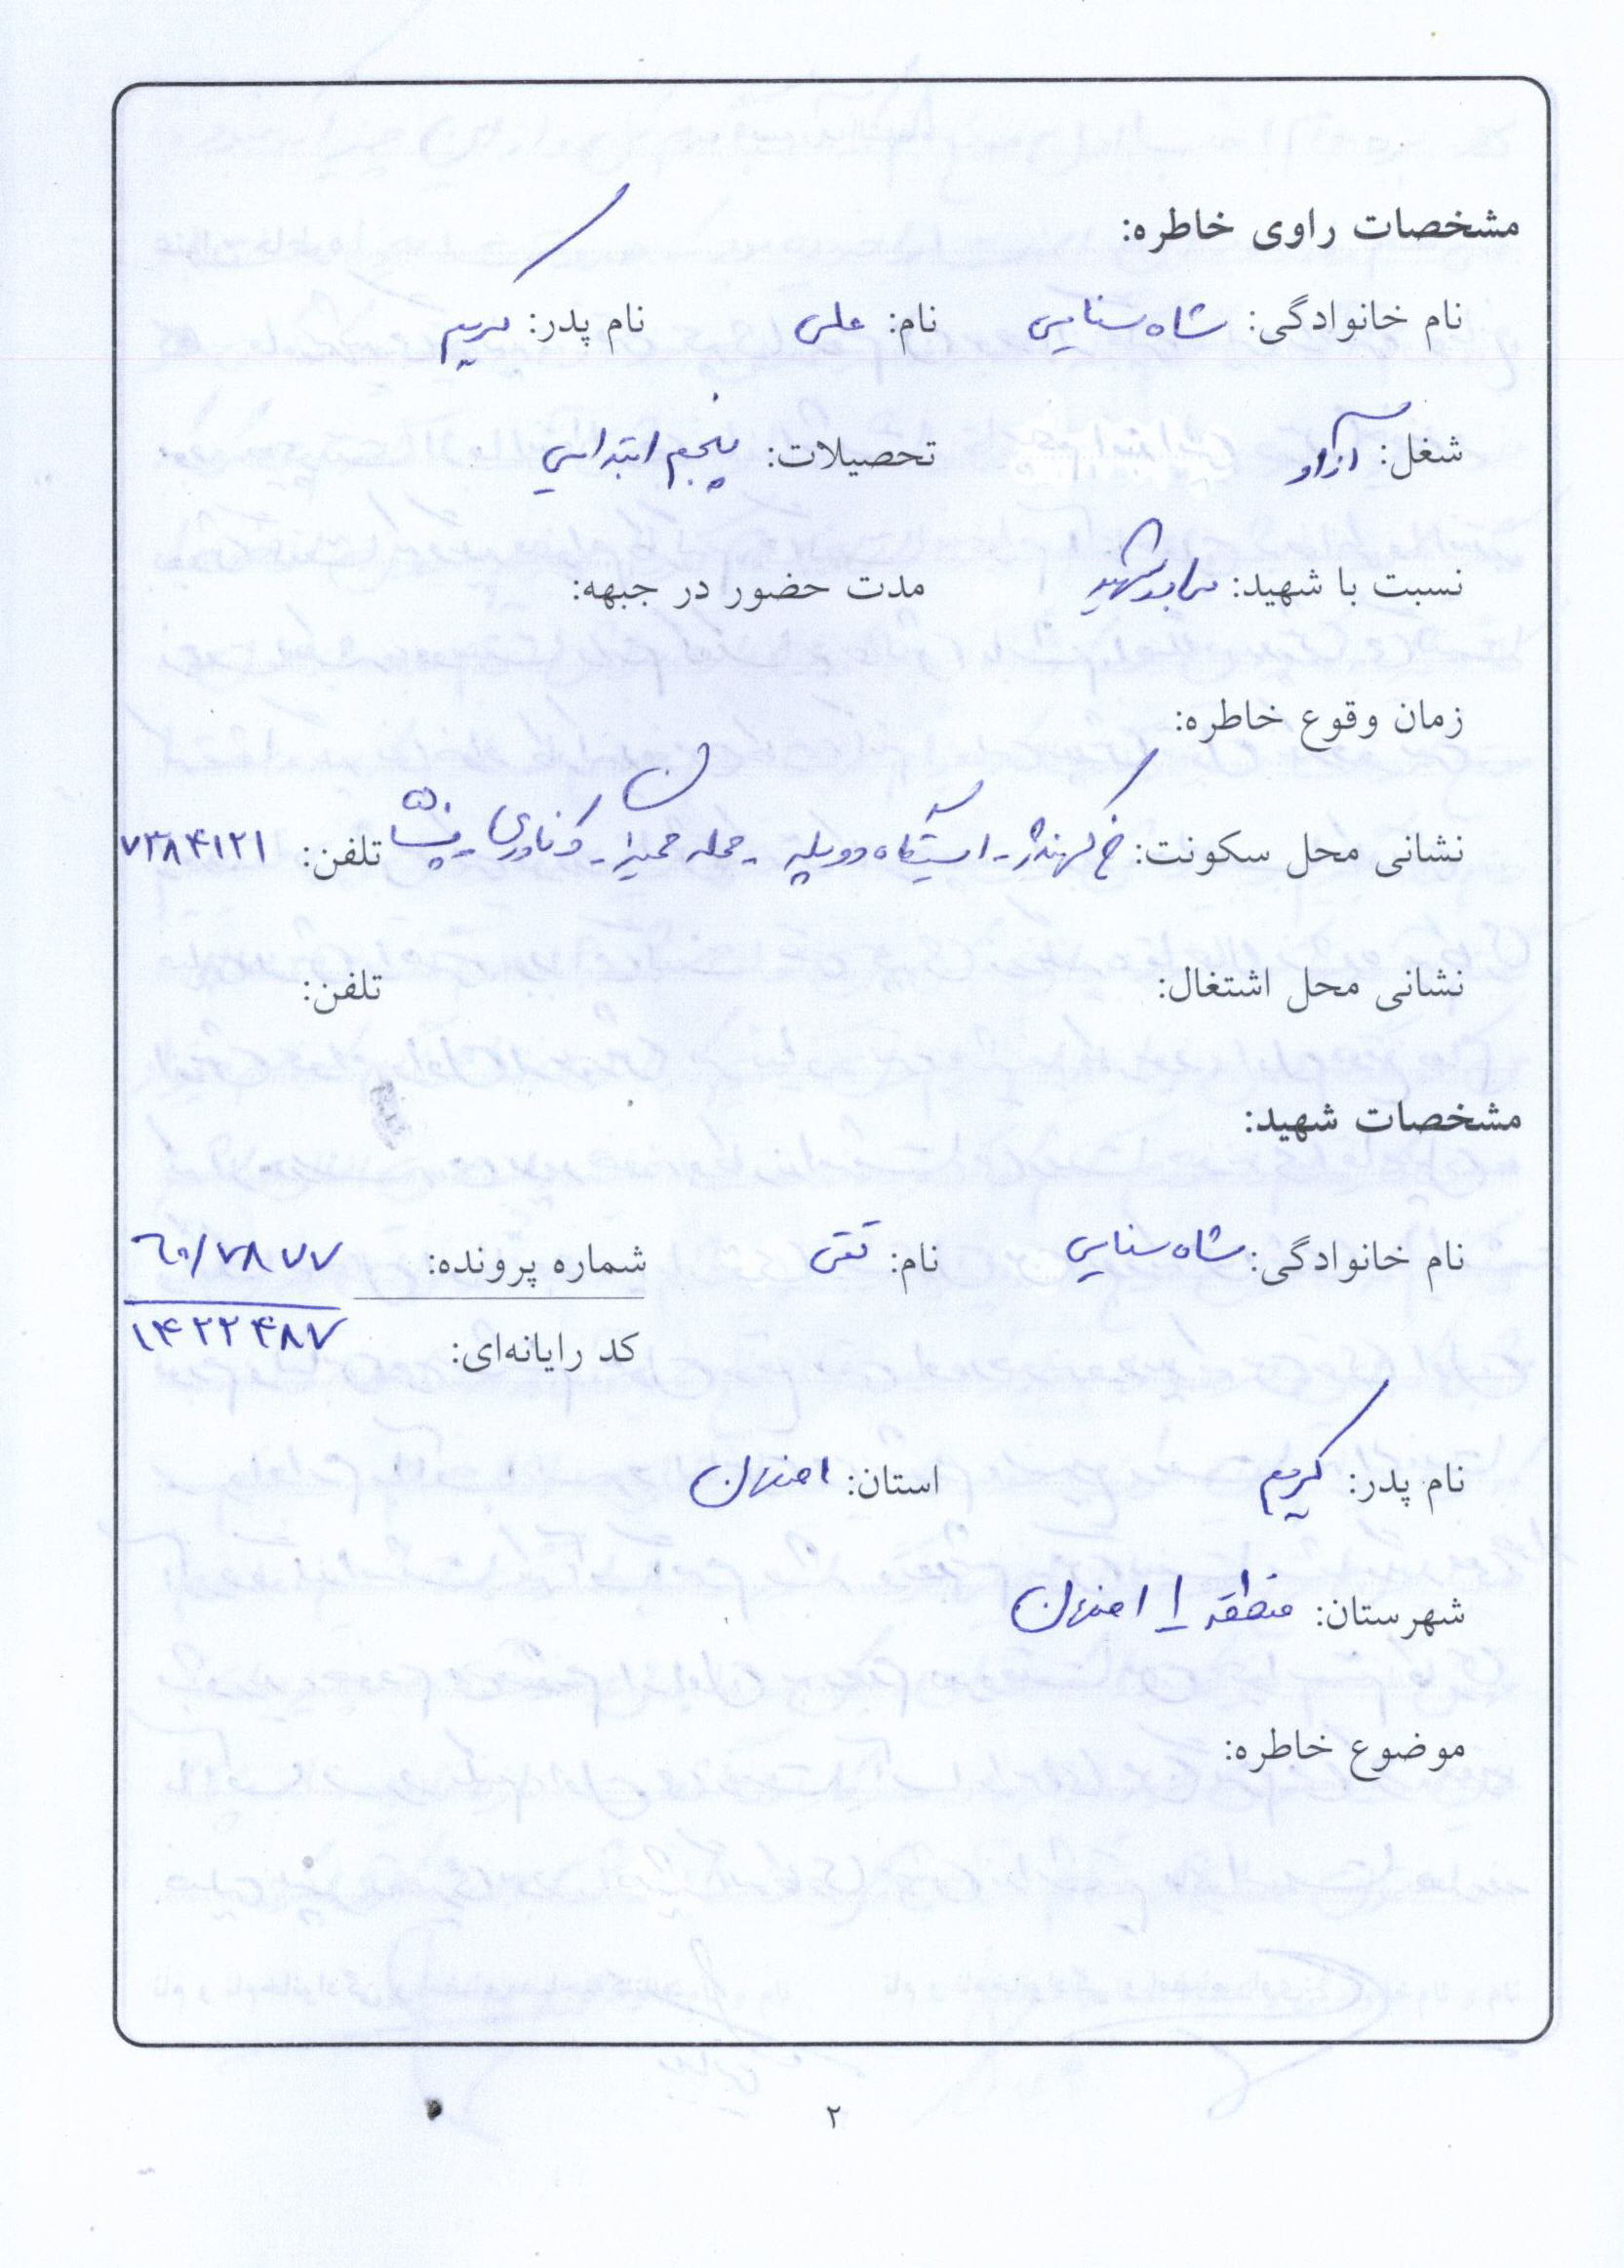 مشخصات راوی خاطره:
نام خانوادگی: شاه سنایی نام: علی نام پدر: کریم
شغل: آزاد تحصیلات: پنجم ابتدایی
نسبت با شهید: برادر شهید مدت حضور در جبهه:
زمان وقوع خاطره:
نشانی محل سکونت: خ کهندژ - ایستگاه دوپله - محله جمیزان - ک نادری - تلفن: ۷۳۸۴۱۲۱
نشانی محل اشتغال: تلفن:
مشخصات شهید:
نام خانوادگی: شاه سنایی نام: تقی شماره پرونده: ۶۰/۷۸۷۷
کد رایانه‌ای: ۱۴۲۲۴۸۷
نام پدر: کریم استان: اصفهان
شهرستان: منطقه ۱ اصفهان
موضوع خاطره:
۲